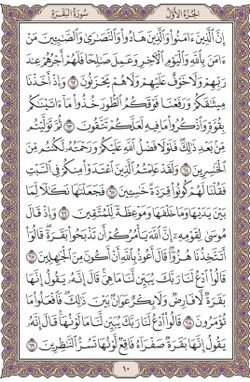 الجزء الأول سورة البقرة
إن الذين ءامنوا والذين هادوا والنصرى والصبين من
ءامن بالله واليوم الأخر وعمل صلحا فلهم أجرهم عند
ربهم ولا خوف عليهم ولا هم يحزنون ٦٢ وإذ أخذنا
ميثقكم ورفعنا فوقكم الطور خذوا ما ءاتينكم
بقوة واذكروا ما فيه لعلكم تتقون ٦٣ ثم توليتم
من بعد ذلك فلولا فضل الله عليكم ورحمته لكنتم من
الخسرين ٦٤ ولقد علمتم الذين اعتدوا منكم في السبت
فقلنا لهم كونوا قردة خسين ٦٥ فجعلنها نكلا لما
بين يديها وما خلفها وموعظة للمتقين ٦٦ وإذ قال
موسى لقومه إن الله يأمركم أن تذبحوا بقرة قالوا
أتتخذنا هزوا قال أعوذ بالله أن أكون من الجهلين ٦٧
قالوا ادع لنا ربك يبين لنا ما هي قال إنه يقول إنها
بقرة لا فارض ولا بكر عوان بين ذلك فافعلوا ما
تؤمرون ٦٨ قالوا ادع لنا ربك يبين لنا ما لونها قال إنه
يقول إنها بقرة صفراء فاقع لونها تسر النظرين ٦٩
١٠